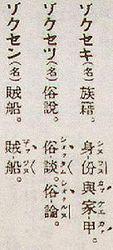 ゾクセキ(名)族籍。身份與家甲。
ゾクセツ(名)俗說。俗談。俗論。
ゾクセン(名)賊船。賊船。